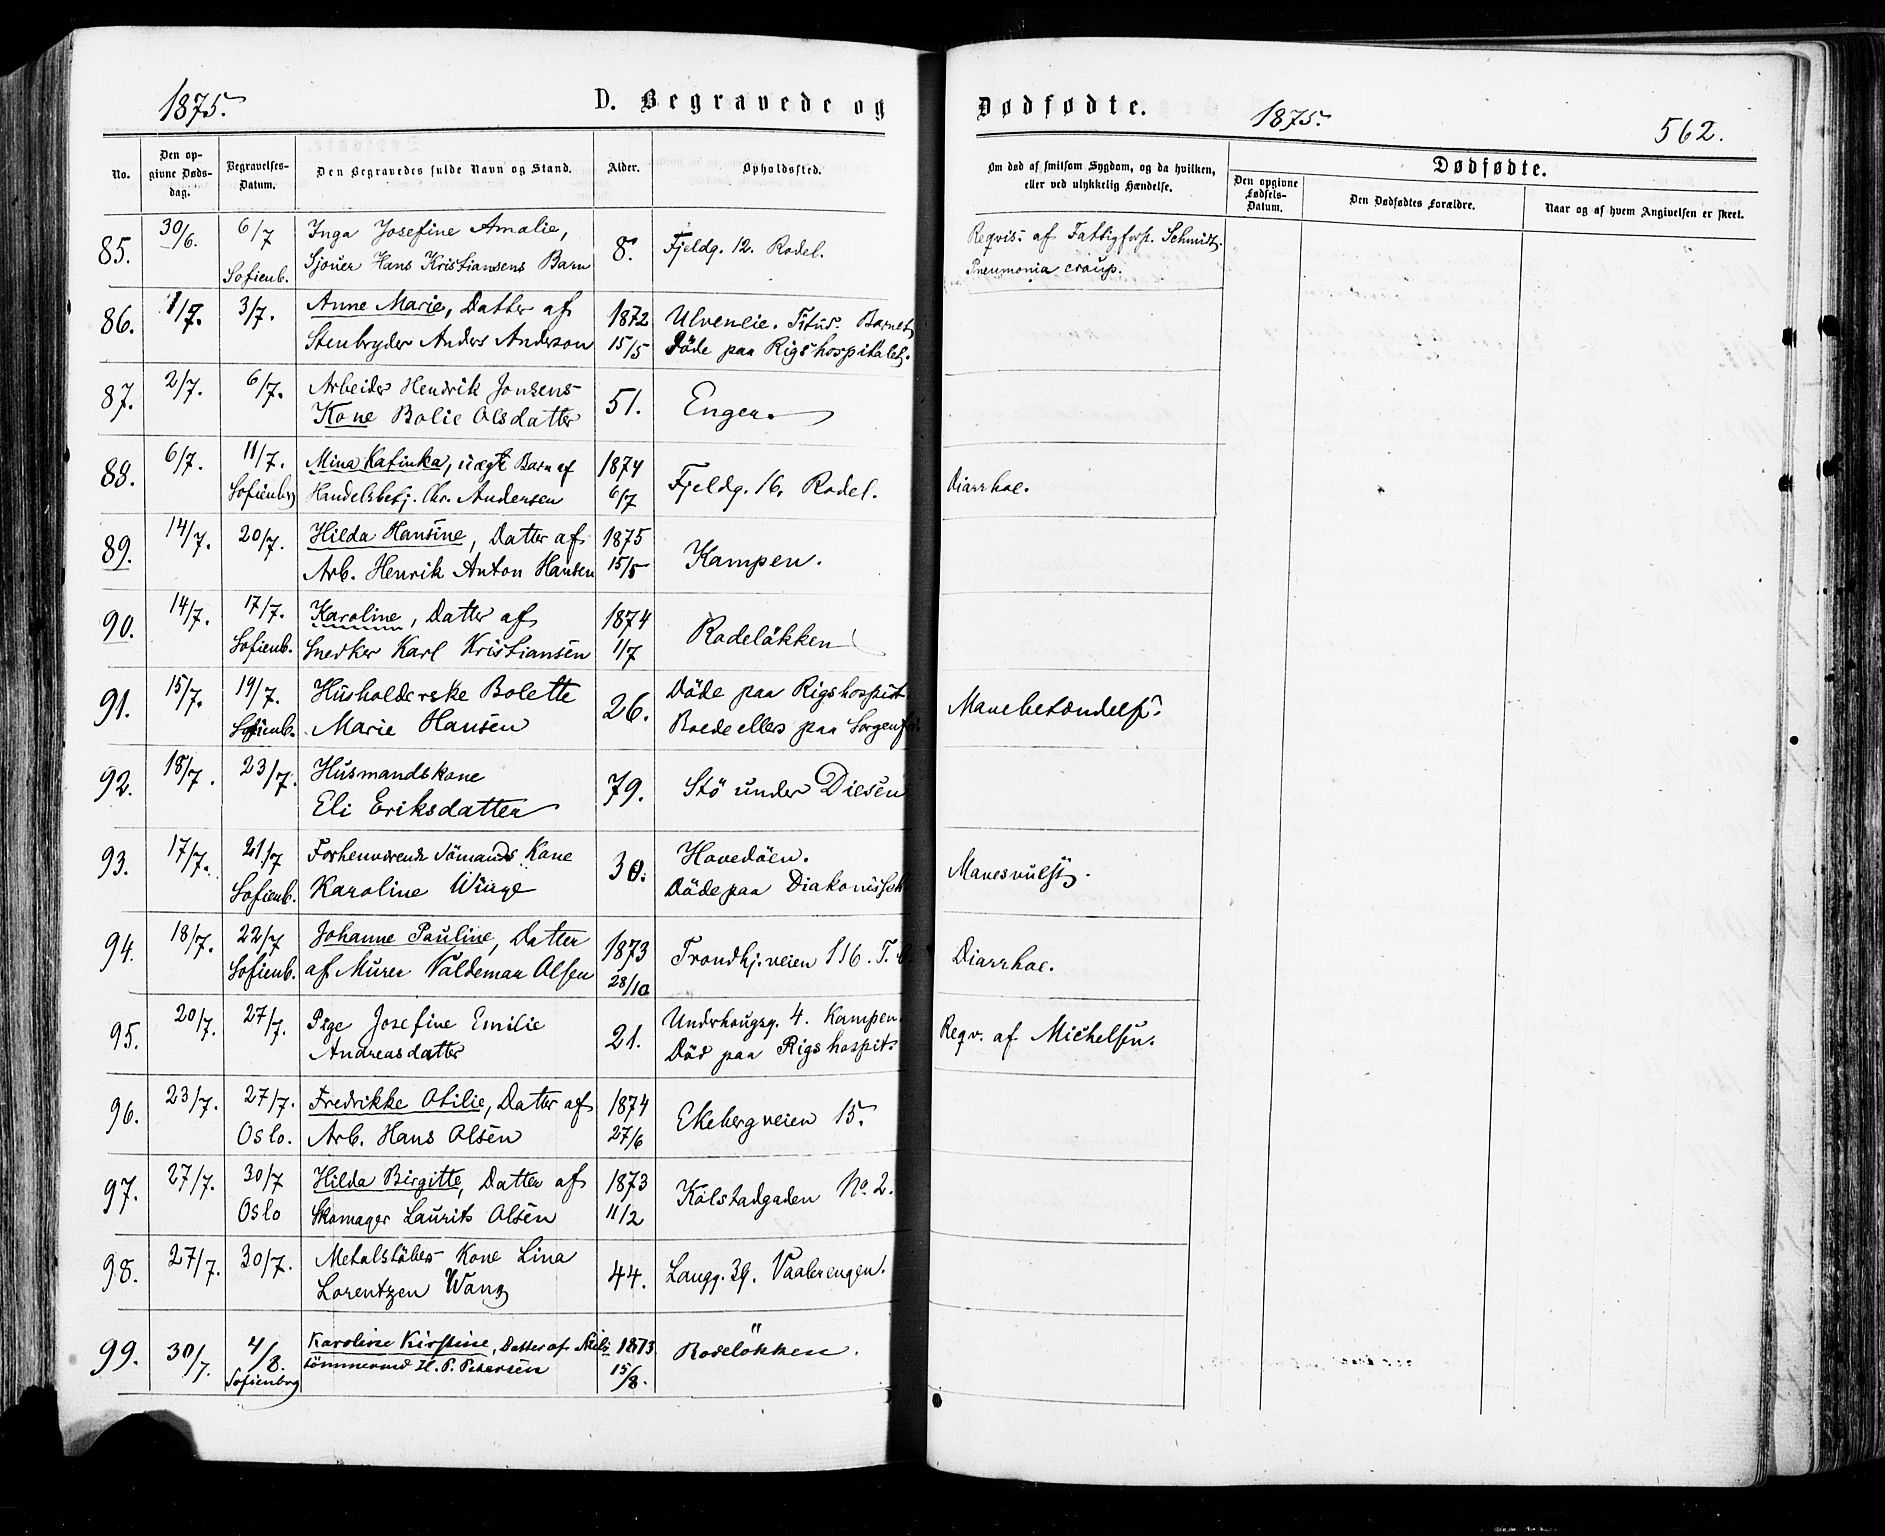 1875.
D. Begravede og
Dødfødte.
1875.
562.
No.
Den op-
givne Døds-
dag.
Begravelses-
Datum.
Den Begravedes fulde Navn og Stand.
Alder.
Opholdssted.
Om død af smitsom Sygdom, og da hvilken,
eller ved ulykkelig Hændelse.
Dødfødte.
Den opgivne
Fødsels-
Datum.
Den Dødfødtes Forældre.
Naar og af hvem Angivelsen er skeet.
85. 30/6. 6/7 Inga Josefine Amalie, 8. Fjeldg. 12. Rodel. Reqvis. af Fattigforst. Schmidt.
Sofienb. Sjouer Hans Kristiansens Barn Pneumonia croup.
86. 1/7. 3/7. Anne Marie, Datter af 1872 Ulvenlie. Barnet
Stenbryder Anders Anderson 15/5 Döde paa Rigshospitalet.
87. 2/7. 6/7. Arbeider Hendrik Jonsens 51. Engen.
Kone Bolie Olsdatter
88. 6/7. 11/7. Mina Katinka, uægte Barn af 1874 Fjeldg. 16. Rodel. Diarrhoe.
Sofienbg Handelsbetj. Chr. Andersen 6/7
89. 14/7. 20/7. Hilda Hansine, Datter af 1875 Kampen.
Arb. Henrik Anton Hansen 15/5
90. 14/7. 17/7. Karoline, Datter af 1874 Rodelökken
Sofienb. Snedker Karl Kristiansen 1/7
91. 15/7. 19/7. Husholderske Bolette 26. Döde paa Rigshospit. Mavebetændelse.
Sofienb. Marie Hansen Boede ellers paa Sorgenfri.
92. 18/7. 23/7. Husmandskone 79. Stö under Diesen
Eli Eriksdatter
93. 17/7. 21/7 Forhenværende Sömands Kone 30. Hovedöen. Mavesvulst.
Sofienb. Karoline Winge Döde paa Diakonissh.
94. 18/7. 22/7 Johanne Pauline, Datter 1873 Trondhj.veien 116. Diarrhoe.
Sofienb. af Murer Valdemar Olsen 28/10
95. 20/7. 27/7. Pige Josefine Emilie 21. Underhougsg. 4. Kampen. Reqv. af Michelsen.
Andreasdatter Död paa Rigshospit.
96. 23/7. 27/7. Fredrikke Otilie, Datter af 1874 Ekebergveien 15.
Oslo. Arb. Hans Olsen 27/6
97. 27/7. 30/7 Hilda Birgitte, Datter af 1873 Kolstadgaden No. 2.
Oslo Skomager Laurits Olsen 11/2
98. 27/7. 30/7. Metalstöbers Kone Lina 44. Langg. 39. Vaalerengen.
Lorentzen Wang
99. 30/7. 4/8. Karoline Kirstine, Datter af 1873 Rodelökken.
Sofienbrg tömmermd H. P. Petersen 15/8.